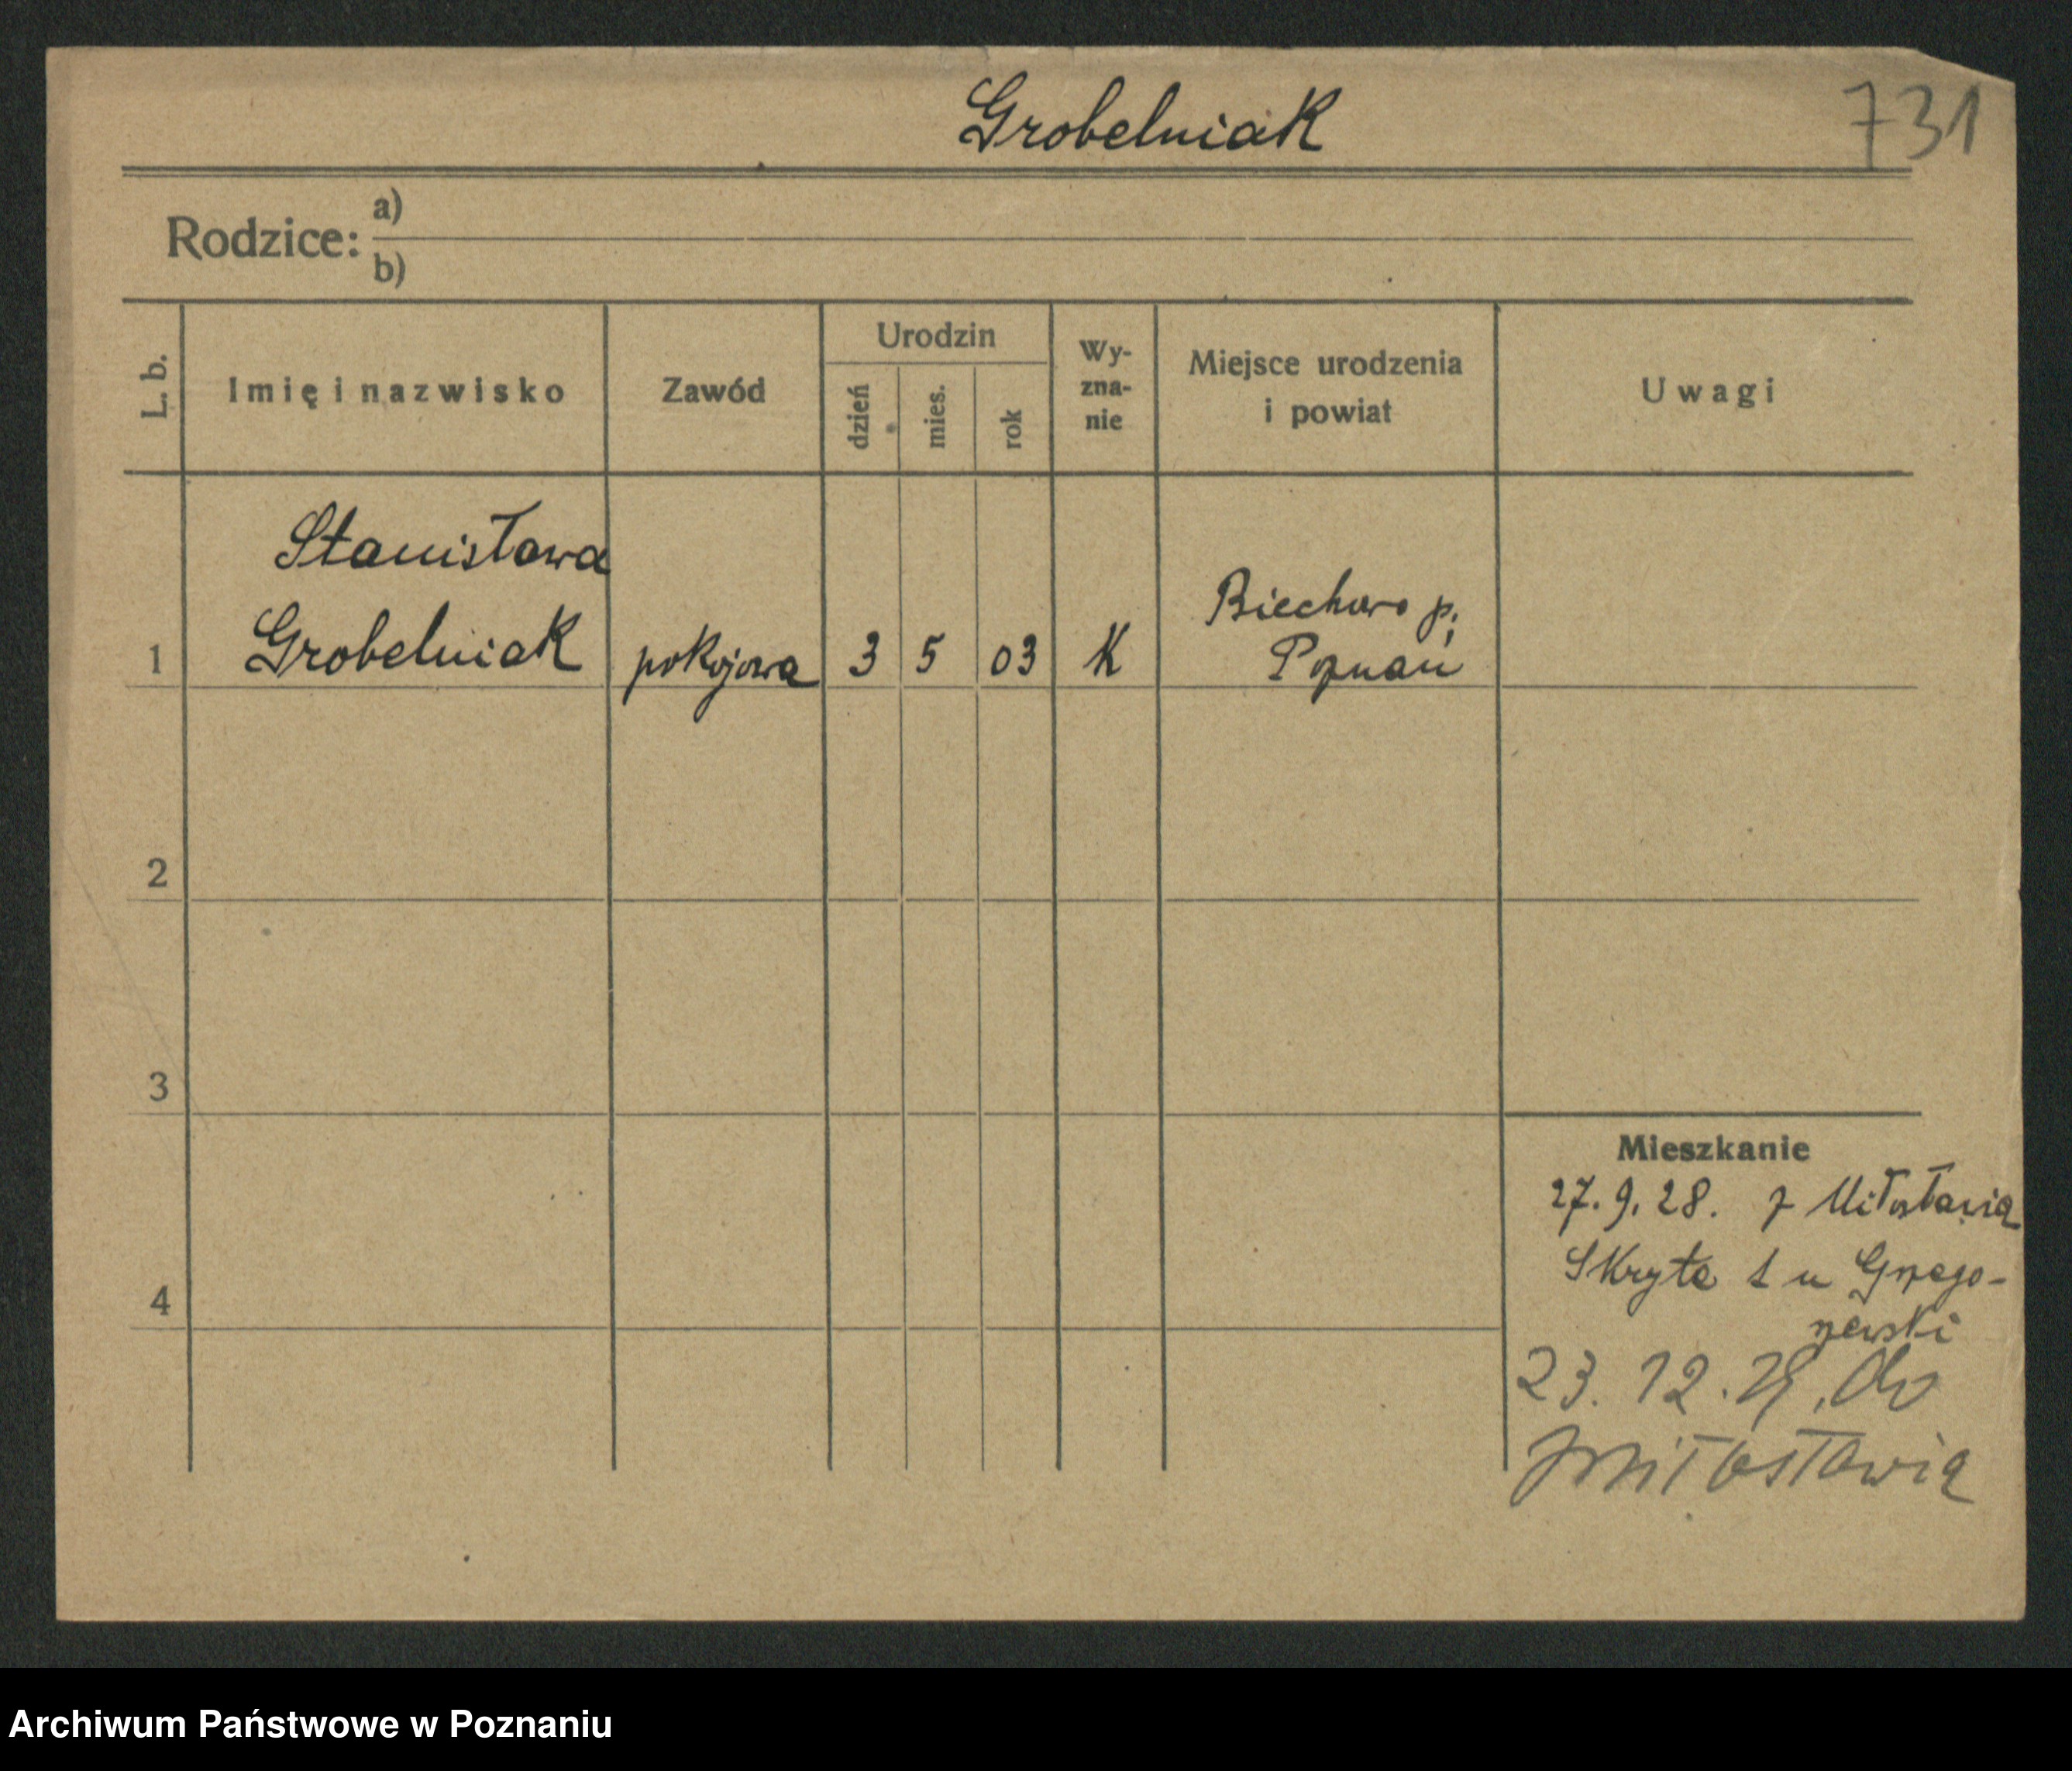 Grobelniak
731
Rodzice:
a)
b)
L. b.
Imię i nazwisko
Zawód
Urodzin
dzień
mies.
rok
Wy-
zna-
nie
Miejsce urodzenia
i powiat
Uwagi
Stanisława
Grobelniak
1
pokojowa
3
5
03
K
Biechowo p.
Poznań
2
3
4
Mieszkanie
27.9.28. z Miłosławia
Skryta 1 u Grzego-
rzewski
23. 12. 28, do
Miłosławia
Archiwum Państwowe w Poznaniu